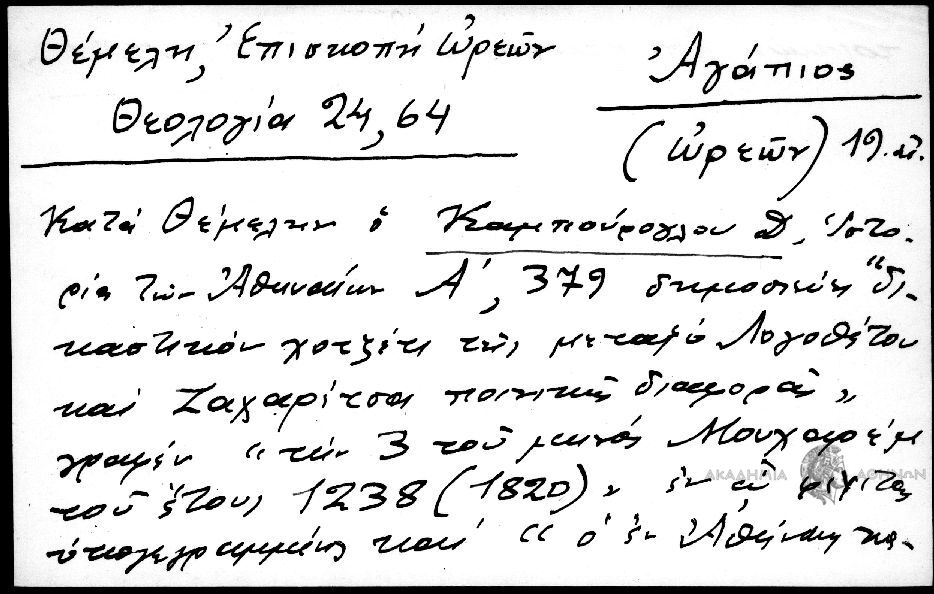 Θέμελη, Ἐπισκοπή Ὠρεῶν
Θεολογία 24, 64
Ἀγάπιος
(Ὠρεῶν) 19. αἰ.
Κατά Θέμελην ὁ Καμπούρογλου Δ. Ἱστο-
ρία τῶν Ἀθηναίων Α΄, 379 δημοσιεύει "δι-
καστικόν χοτζέτι τῆς μεταξύ Λογοθέτου
καί Ζαχαρίτσα ποινικῆς διαφορᾶς"
γραφέν "τήν 3 τοῦ μηνός Μουχαρέμ
τοῦ ἔτους 1238 (1820)" ἐν ᾧ
ὑπογεγραμμένος καί "ὁ ἐν Ἀθήναις κα-
ΑΚΑΔΗΜΙΑ ΑΘΗΝΩΝ